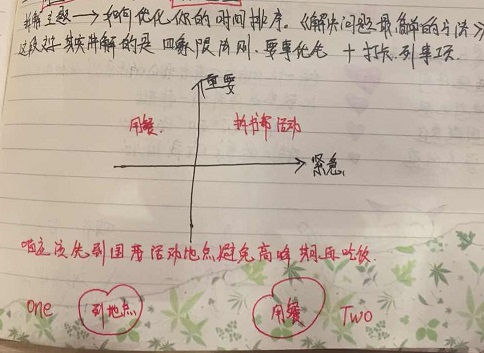 拆解主题 → 如何优化你的时间排序。《解决问题最简单的方法》
这段文字其实讲解的是 四象限法则. 要事优先 + 打包列事项.
重要
用餐. 拆书帮活动
紧急
应该先到图书活动地点避免高峰期再吃饭.
One 到地点 用餐 Two